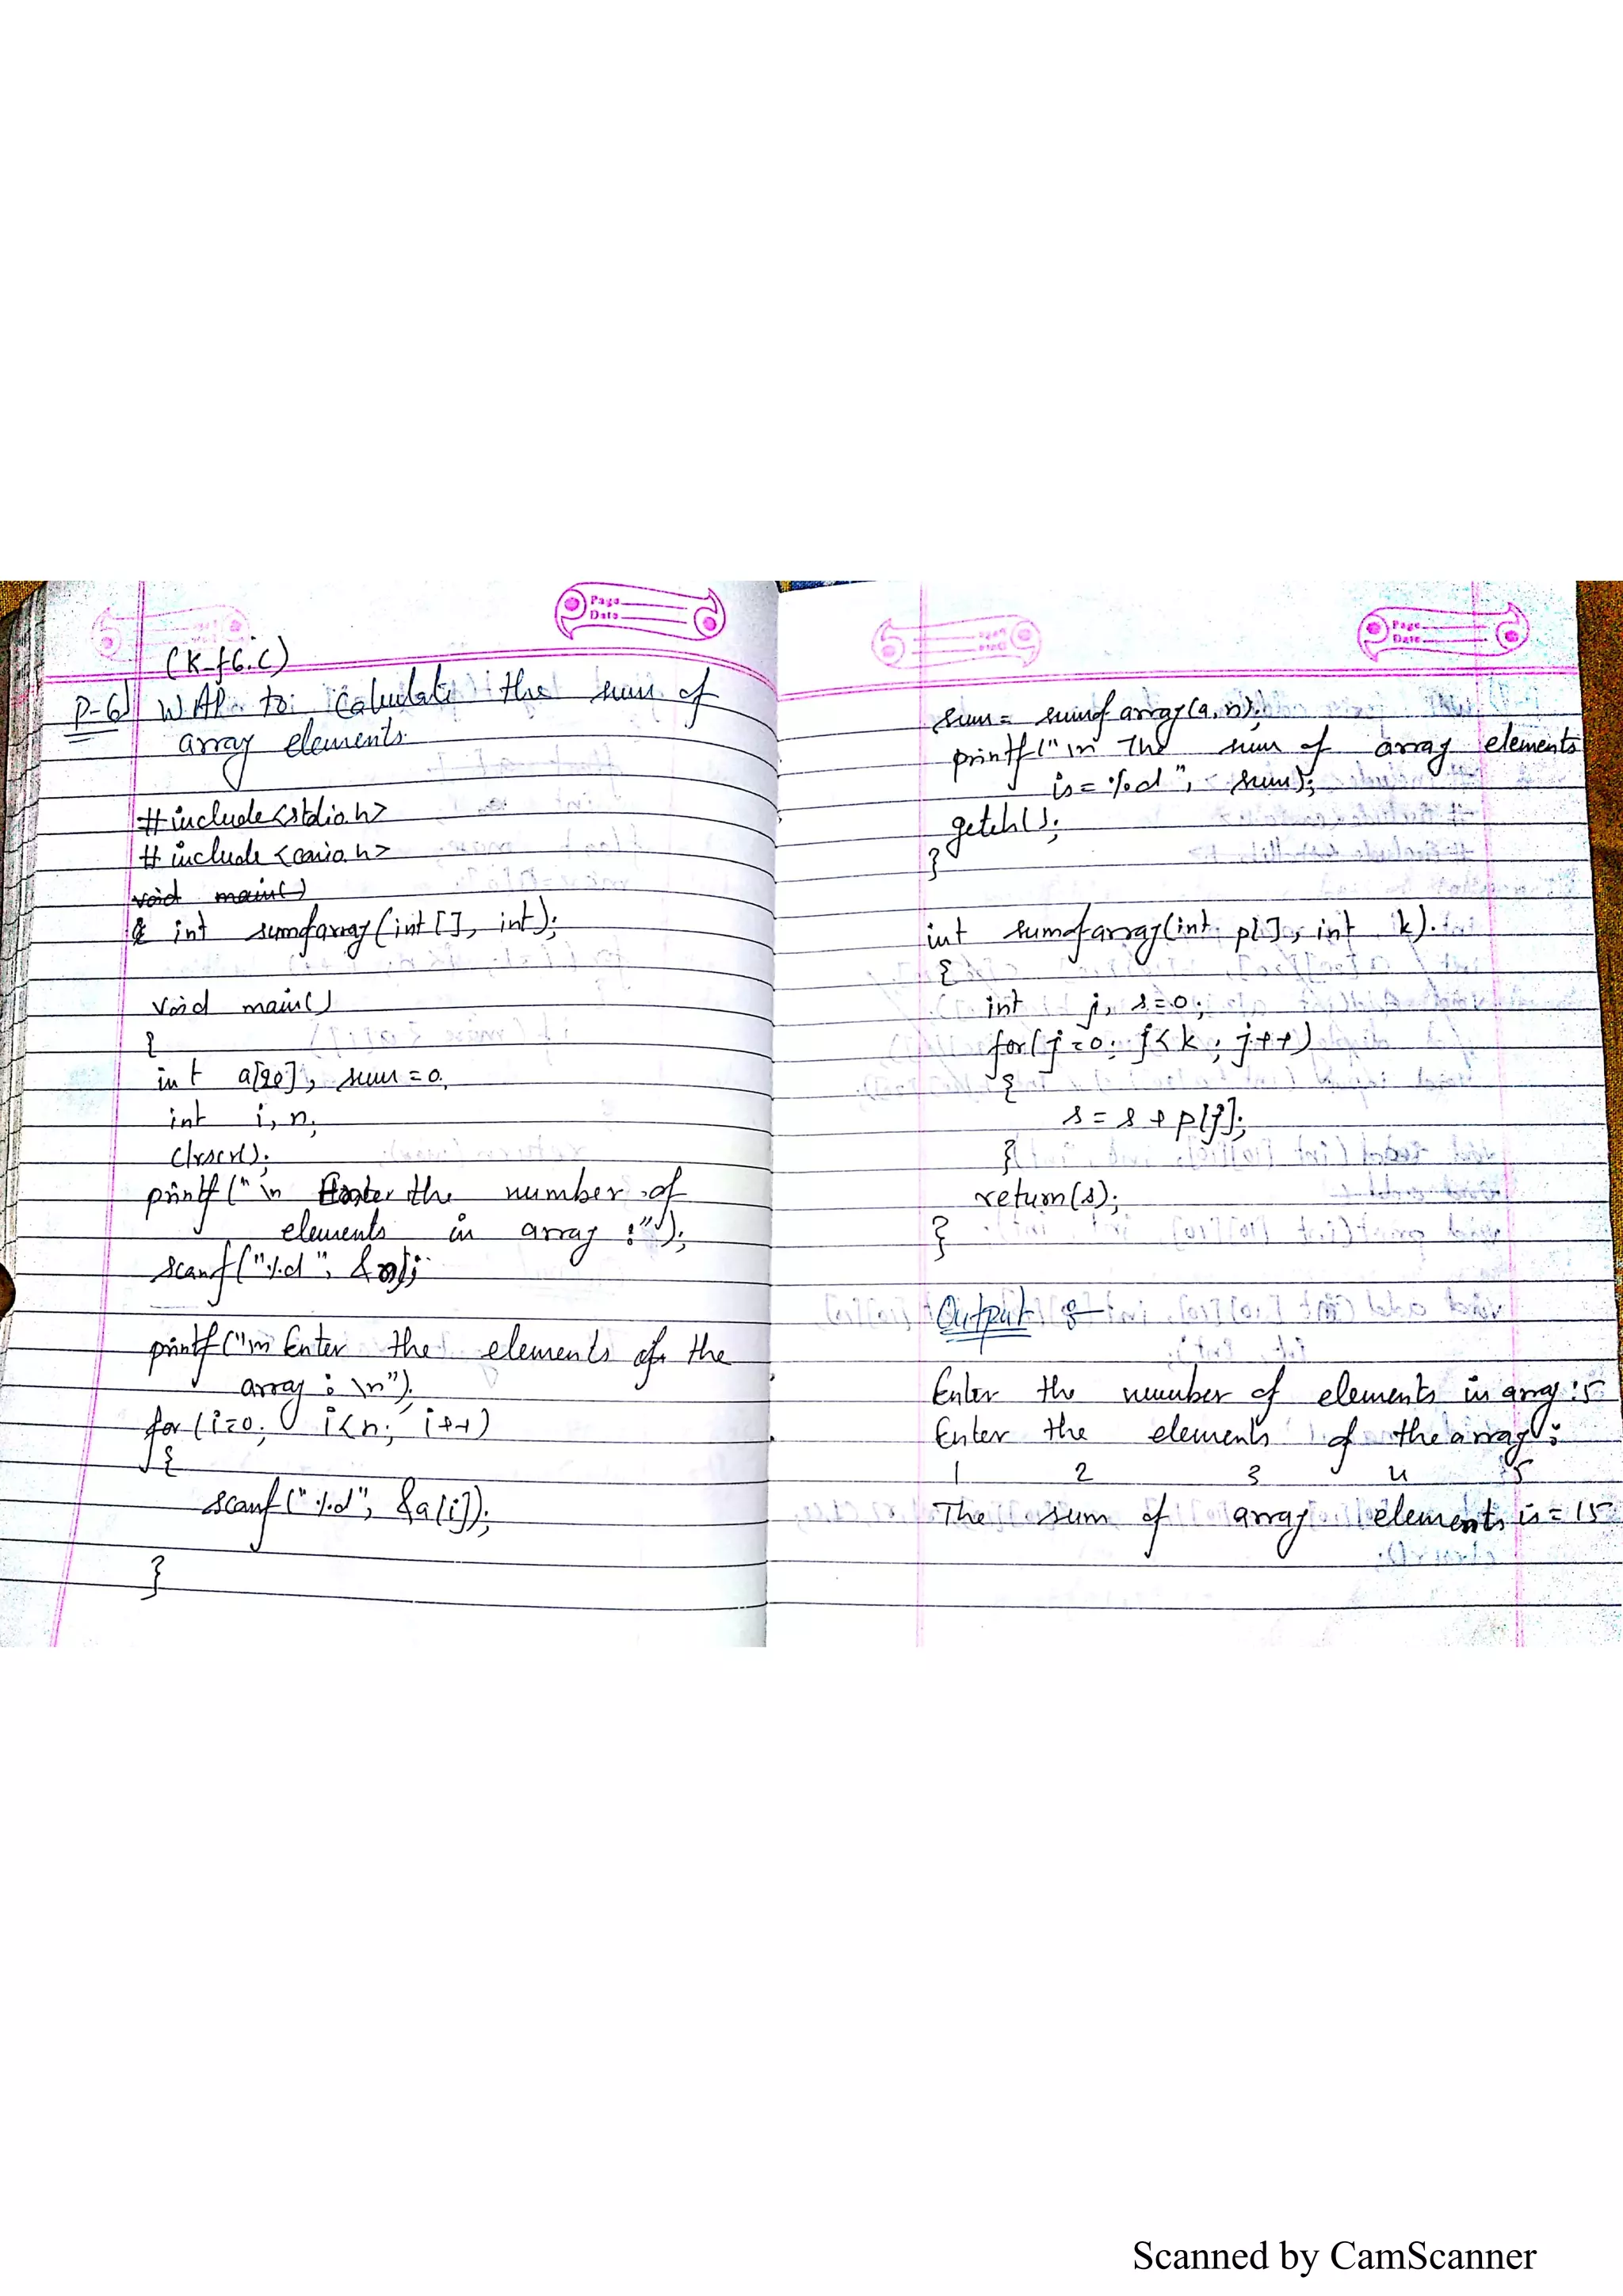 Page
Date
(K_f6.C)
P-6) WAP to calculate the sum of
array elements.
#include<stdio.h>
#include<conio.h>
void main()
int sumofarray(int[], int);
void main()
{
int a[20], sum=0,
int i, n;
clrscr();
printf("\n Enter the number of
elements in array :");
scanf("%d", &n);
printf("\n Enter the elements of the
array : \n");
for (i=0; i<n; i++)
{
scanf("%d", &a[i]);
}
Page
Date
sum= sumofarray(a,n);
printf("\n The sum of array elements
is=%d", sum);
getch();
}
int sumofarray(int p[], int k)
{
int j, s=0;
for(j=0; j<k; j++)
{
s=s+p[j];
}
return(s);
}
Output :-
Enter the number of elements in array :5
Enter the elements of the array :
1 2 3 4 5
The sum of array elements is=15
Scanned by CamScanner